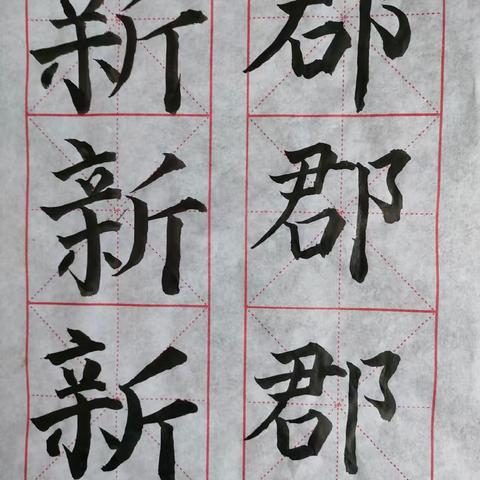 新郡
新郡
新郡